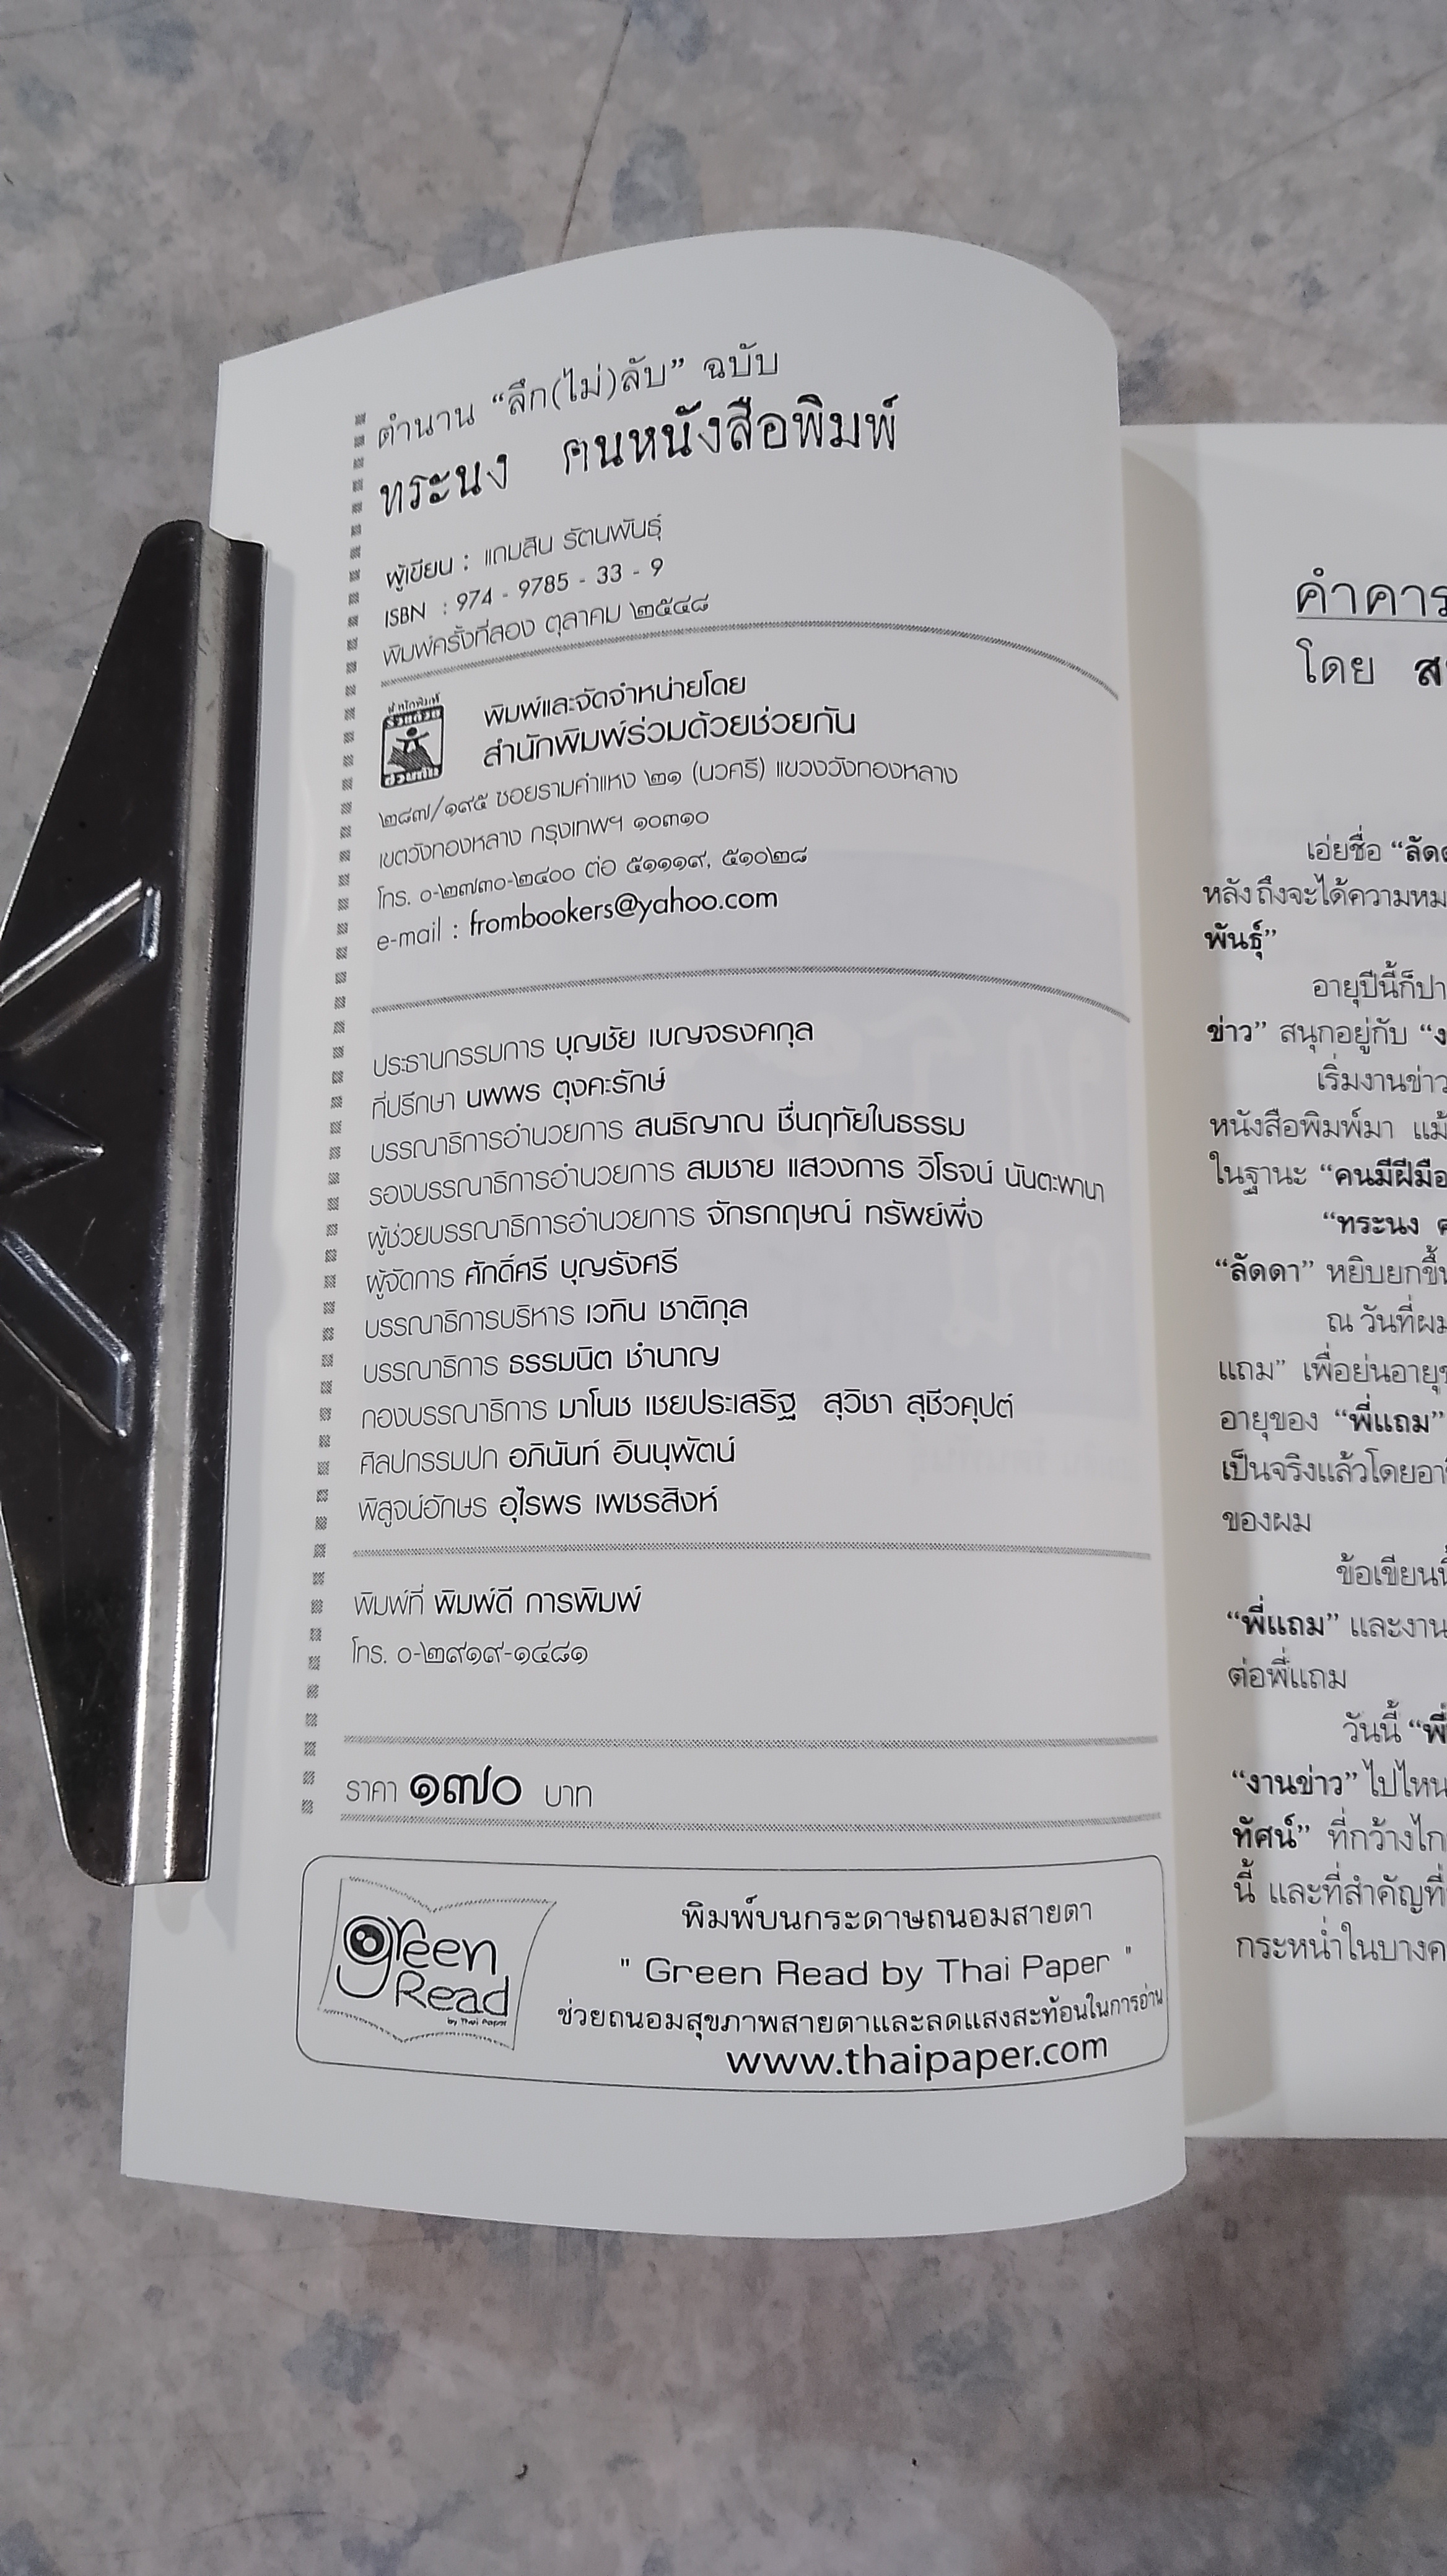 ตำนาน “ลึก(ไม่)ลับ” ฉบับ
ทระนง คนหนังสือพิมพ์
ผู้เขียน : แถมสิน รัตนพันธุ์
ISBN : 974 - 9785 - 33 - 9
พิมพ์ครั้งที่สอง ตุลาคม ๒๕๔๘
สำนักพิมพ์
ร่วมด้วย
ช่วยกัน
พิมพ์และจัดจำหน่ายโดย
สำนักพิมพ์ร่วมด้วยช่วยกัน
๒๘๗/๑๙๕ ซอยรามคำแหง ๒๑ (นวศรี) แขวงวังทองหลาง
เขตวังทองหลาง กรุงเทพฯ ๑๐๓๑๐
โทร. ๐-๒๗๓๐-๒๔๐๐ ต่อ ๕๑๑๑๙, ๕๑๐๒๘
e-mail : frombookers@yahoo.com
ประธานกรรมการ บุญชัย เบญจรงคกุล
ที่ปรึกษา นพพร ตุงคะรักษ์
บรรณาธิการอำนวยการ สนธิญาณ ชื่นฤทัยในธรรม
รองบรรณาธิการอำนวยการ สมชาย แสวงการ วิโรจน์ นันตะพานา
ผู้ช่วยบรรณาธิการอำนวยการ จักรกฤษณ์ ทรัพย์พึ่ง
ผู้จัดการ ศักดิ์ศรี บุญรังศรี
บรรณาธิการบริหาร เวทิน ชาติกุล
บรรณาธิการ ธรรมนิต ชำนาญ
กองบรรณาธิการ มาโนช เชยประเสริฐ สุวิชา สุชีวคุปต์
ศิลปกรรมปก อภินันท์ อินนุพัฒน์
พิสูจน์อักษร อุไรพร เพชรสิงห์
พิมพ์ที่ พิมพ์ดี การพิมพ์
โทร. ๐-๒๙๑๙-๑๔๘๑
ราคา ๑๗๐ บาท
green
Read
by Thai Paper
พิมพ์บนกระดาษถนอมสายตา
" Green Read by Thai Paper "
ช่วยถนอมสุขภาพสายตาและลดแสงสะท้อนในการอ่าน
www.thaipaper.com
คำคาร
โดย ส
เอ่ยชื่อ “ลัด
หลังถึงจะได้ความหม
พันธุ์”
อายุปีนี้ก็ปา
ข่าว” สนุกอยู่กับ “ง
เริ่มงานข่าว
หนังสือพิมพ์มา แม้
ในฐานะ “คนมีฝีมือ
“ทระนง ค
“ลัดดา” หยิบยกขึ้น
ณ วันที่ผม
แถม” เพื่อย่นอายุข
อายุของ “พี่แถม”
เป็นจริงแล้วโดยอา
ของผม
ข้อเขียนนี้
“พี่แถม” และงาน
ต่อพี่แถม
วันนี้ “พี่
“งานข่าว” ไปไหน
ทัศน์” ที่กว้างไก
นี้ และที่สำคัญที่
กระหน่ำในบางค